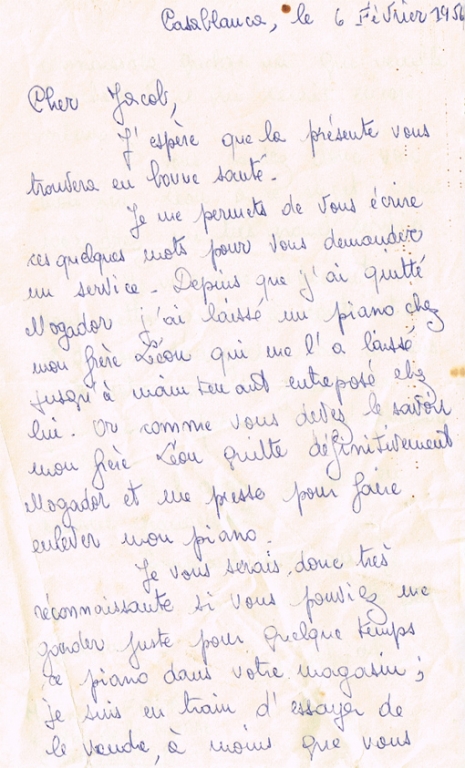 Casablanca, le 6 Février 1956
Cher Jacob,
J'espère que la présente vous
trouvera en bonne santé.
Je me permets de vous écrire
ces quelques mots pour vous demander
un service. Depuis que j'ai quitté
Mogador j'ai laissé un piano chez
mon frère Léon qui me l'a laissé
jusqu'à maintenant entreposé chez
lui. Or comme vous devez le savoir
mon frère Léon quitte définitivement
Mogador et me presse pour faire
enlever mon piano.
Je vous serais donc très
réconnaissante si vous pouviez me
garder juste pour quelque temps
ce piano dans votre magasin ;
je suis en train d'essayer de
le vendre, à moins que vous